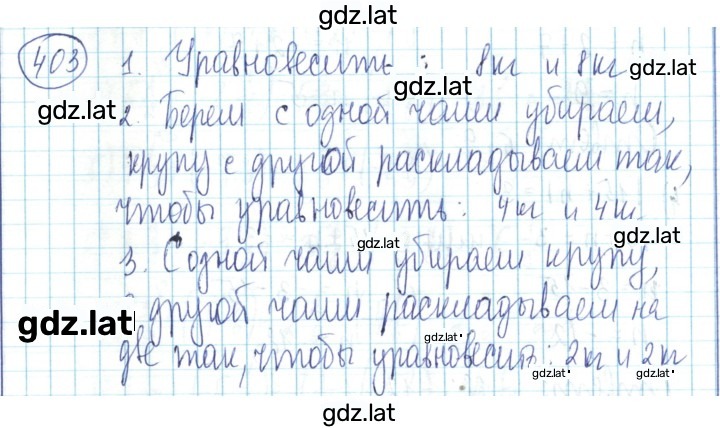 gdz.lat
403 1. Уравновесить: 8кг и 8кг
gdz.lat
gdz.lat
gdz.lat
2. Берем с одной чаши убираем,
крупу с другой раскладываем так,
чтобы уравновесить: 4кг и 4кг.
gdz.lat
gdz.lat
3. С одной чаши убираем крупу,
gdz.lat
другой чаши раскладываем на
gdz.lat
две так, чтобы уравновесить: 2кг и 2кг
gdz.lat
gdz.lat
gdz.lat